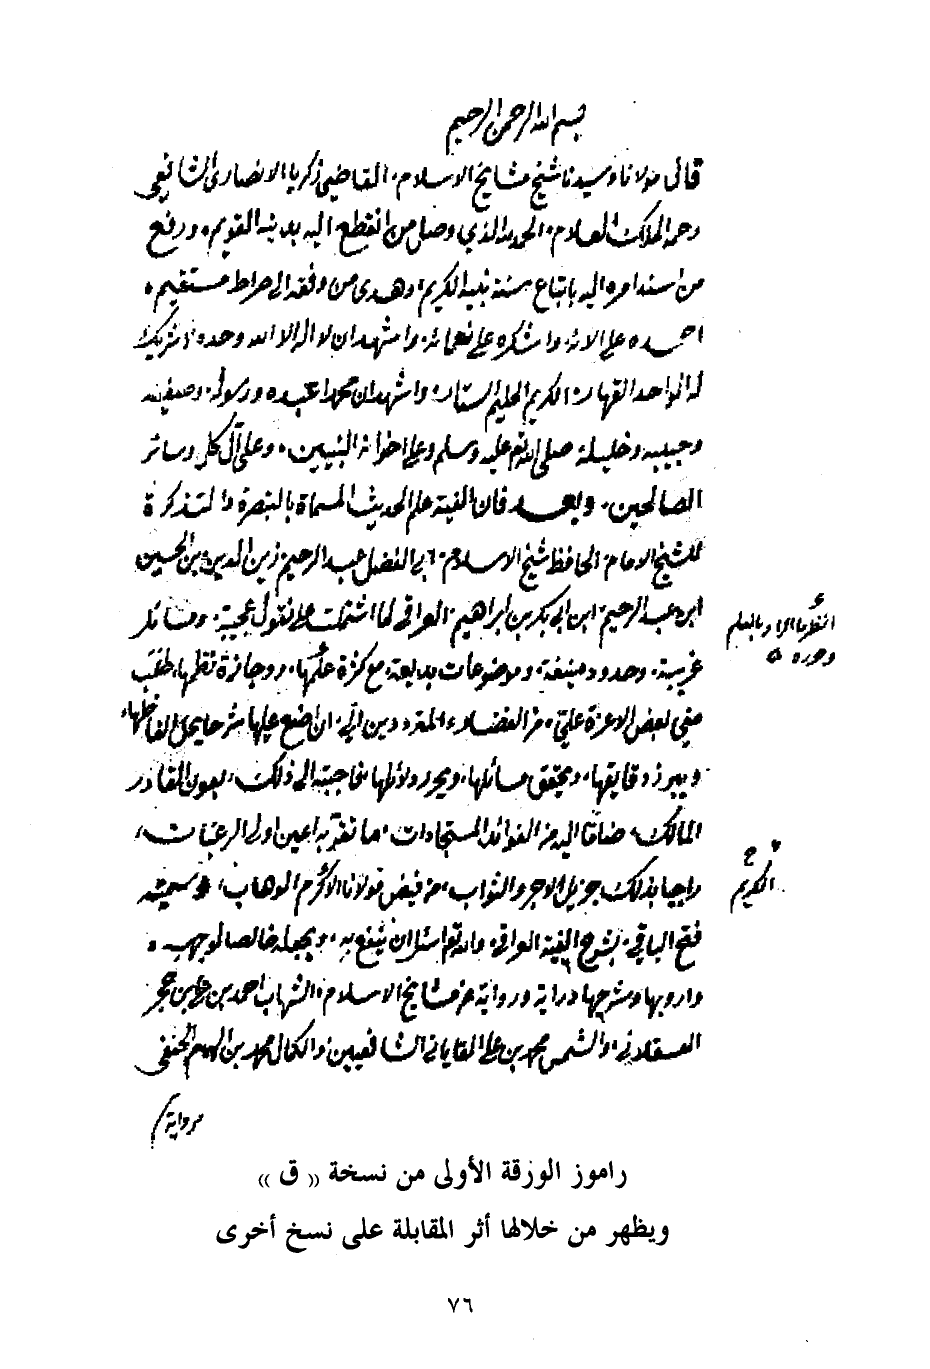 بسم الله الرحمن الرحيم
قال مولانا وسيدنا شيخ مشايخ الاسلام، القاضي زكريا الانصاري الشافعي
رحمه الملك العلام، الحمد لله الذي وصل من انقطع اليه بدينه القويم، ورفع
من اسند امره اليه باتباع سنة نبيه الكريم، وهدى من وفقه الى صراط مستقيم،
احمده على الائه، واشكره على نعمائه، واشهد ان لا اله الا الله وحده لا شريك
له الواحد القهار، الكريم الحليم الستار، واشهد ان محمدا عبده ورسوله، وصفيه
وحبيبه وخليله، صلى الله عليه وسلم وعلى اخوانه النبيين، وعلى آل كل وسائر
الصالحين، وبعد فان الفية علم الحديث المسماة بالتبصرة والتذكرة
للشيخ الامام، الحافظ شيخ الاسلام، ابي الفضل عبد الرحيم زين الدين بن الحسين
ابن عبد الرحيم ابن ابي بكر بن ابراهيم العراقي لما اشتملت على نقول عجيبة، ومسائل
غريبة، وحدود منيعة، وموضوعات بديعة، مع كثرة علمها، ووجازة نظمها، طلب
مني بعض الاعزة علي، من الفضلاء المترددين الي، ان اضع عليها شرحا يحل الفاظها،
ويبرز دقايقها، ويحقق مسائلها، ويحرر دلائلها، فاجبته الى ذلك، بعون القادر
المالك، ضاما اليه من الفوائد المستجادات، ما تقر به اعين اولى الرغبات،
راجيا بذلك جزيل الاجر والثواب، من فيض مولانا الاكرم الوهاب، وسميته
فتح الباقي، بشرح الفية العراقي، والله اسأل ان ينفع به، ويجعله خالصا لوجهه،
وارويها وشرحها دراية ورواية عن مشايخ الاسلام، الشهاب احمد بن علي بن حجر
العسقلاني، والشمس محمد بن علي القاياتي الشافعيين، والكمال محمد بن الهمام الحنفي
برواية
الكريم
راموز الورقة الأولى من نسخة « ق »
ويظهر من خلالها أثر المقابلة على نسخ أخرى
٧٦